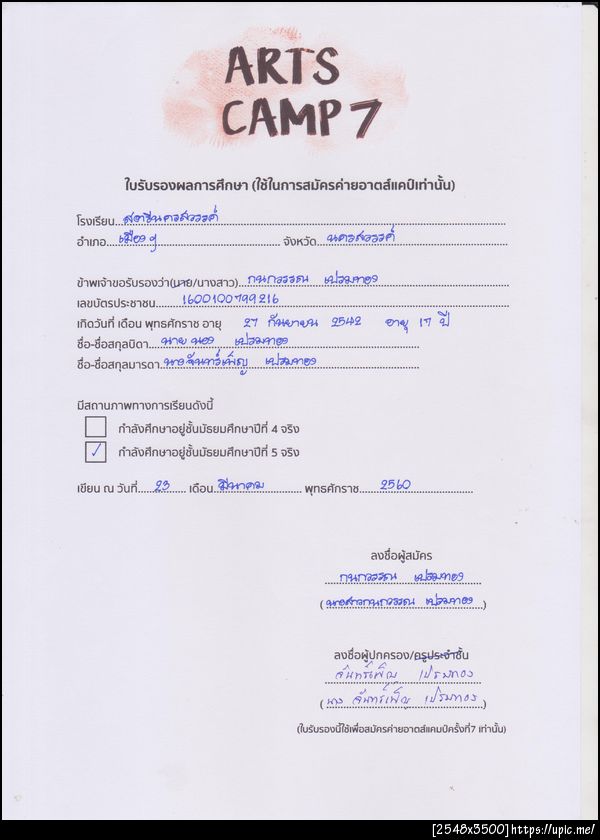 ARTS
CAMP 7
ใบรับรองผลการศึกษา (ใช้ในการสมัครค่ายอาตส์แคป์เท่านั้น)
โรงเรียน...สตรีนครสวรรค์
อำเภอ...เมืองฯ จังหวัด...นครสวรรค์
ข้าพเจ้าขอรับรองว่า(นาย/นางสาว) กนกวรรณ เปรมทอง
เลขบัตรประชาชน 1600100799216
เกิดวันที่ เดือน พุทธศักราช อายุ 27 กันยายน 2542 อายุ 17 ปี
ชื่อ-ชื่อสกุลบิดา นาย เปรมทอง
ชื่อ-ชื่อสกุลมารดา นางจันทร์เพ็ญ เปรมทอง
มีสถานภาพทางการเรียนดังนี้
กำลังศึกษาอยู่ชั้นมัธยมศึกษาปีที่ 4 จริง
✓ กำลังศึกษาอยู่ชั้นมัธยมศึกษาปีที่ 5 จริง
เขียน ณ วันที่ 23 เดือน มีนาคม พุทธศักราช 2560
ลงชื่อผู้สมัคร
กนกวรรณ เปรมทอง
(นางสาวกนกวรรณ เปรมทอง)
ลงชื่อผู้ปกครอง/ครูประจำชั้น
จันทร์เพ็ญ เปรมทอง
(นาง จันทร์เพ็ญ เปรมทอง)
(ใบรับรองนี้ใช้เพื่อสมัครค่ายอาตส์แคมป์ครั้งที่7 เท่านั้น)
[2548x3500]https://upic.me/